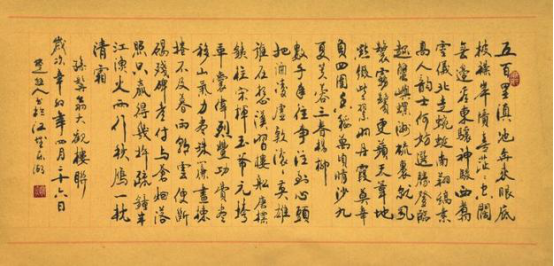 五百里滇池奔来眼底
披襟岸帻喜茫茫空阔
無边看东骧神骏西翥
灵仪北走蜿蜒南翔缟素
高人韵士何妨选胜登临
趁蟹屿螺洲梳裹就风
鬟雾鬓更蘋天苇地
点缀些翠羽丹霞莫辜
负四围香稻万顷晴沙九
夏芙蓉三春杨柳
数千年往事注到心头
把酒凌虚叹滚滚英雄
谁在想汉习楼船唐標
铁柱宋挥玉斧元跨
革囊伟烈豐功费尽
移山气力尽珠簾畫棟
捲不及暮雨朝雲便断
碣残碑都付与苍烟落
照只赢得几杵疏鐘半
江渔火两行秋雁一枕
清霜
孫髯翁大觀樓聯
歲次辛卯年四月二十六日